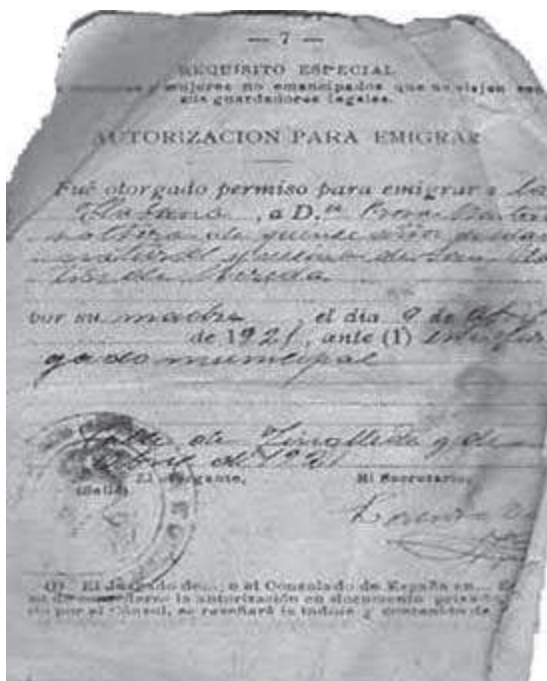 — 7 —
REQUISITO ESPECIAL
y mujeres no emancipados que no viajen con
sus guardadores legales.
AUTORIZACION PARA EMIGRAR
Fué otorgado permiso para emigrar a la
Habana, a D.ª
soltera de quince años de edad
natural y vecina de San
de Cereda
por su madre, el dia 9 de abril
de 1921, ante (1) en el juz
gado municipal
Valle de
abril de 1921
El otorgante, El Secretario,
(Sello)
Lorenzo
(1) El Juzgado de...; o el Consulado de España en...
la autorización en documento privado
por el Cónsul, se reseñará la índole y contenido de